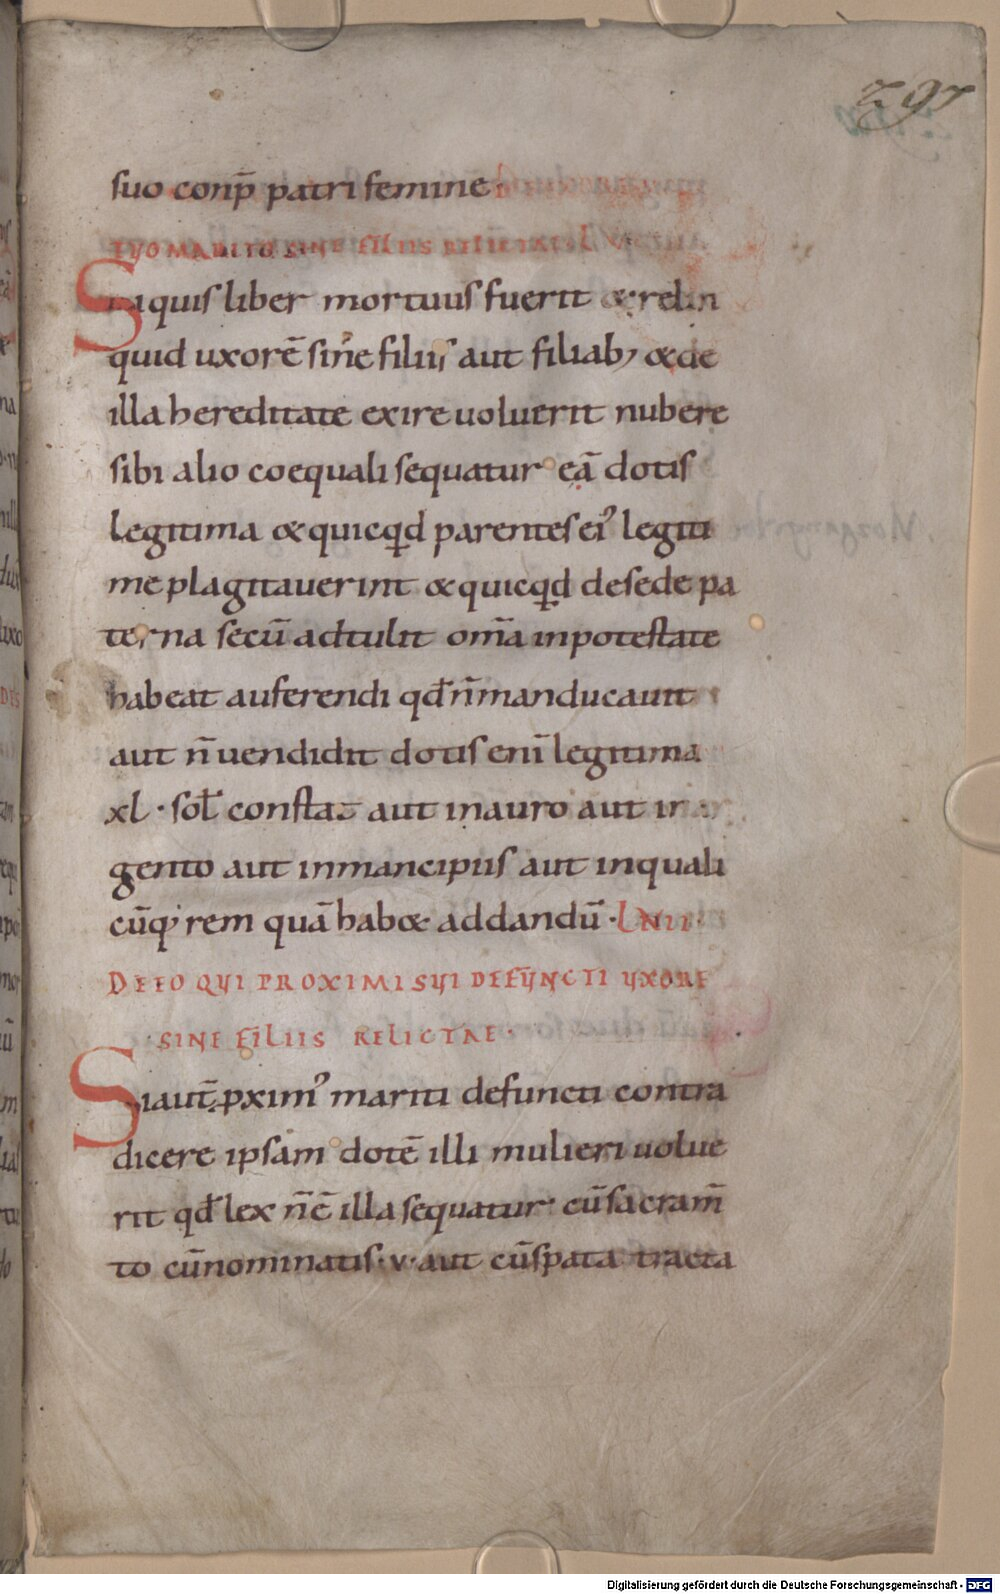 297
suo conp̄ patri femine·
TUO MARITO SINE FILIIS RELICTAE LVI
Si quis liber mortuus fuerit & relin
quid uxorē sine filiis aut filiab; & de
illa hereditate exire uoluerit nubere
sibi alio coequali sequatur eā dotis
legitima & quicq̄d parentes ei' legiti
me plagitauerint & quicq̄d desede pa
terna secū adtulit om̄a inpotestate
habeat auferendi qd̄ n̄ manducauit
aut n̄ uendidit dotis enī legitima
xl · sol̄ constat aut inauro aut in ar
gento aut inmancipiis aut inquali
cūq; rem quā hab& addandū · LVII
DE EO QUI PROXIMI SUI DEFUNCTI UXORE
SINE FILIIS RELICTAE·
Si aut̄ pxim' mariti defuncti contra
dicere ipsam dotē illi mulieri uolue
rit qd̄ lex n̄ ē illa sequatur cū sacram̄
to cū nominatis · v · aut cū spata tracta
Digitalisierung gefördert durch die Deutsche Forschungsgemeinschaft - DFG